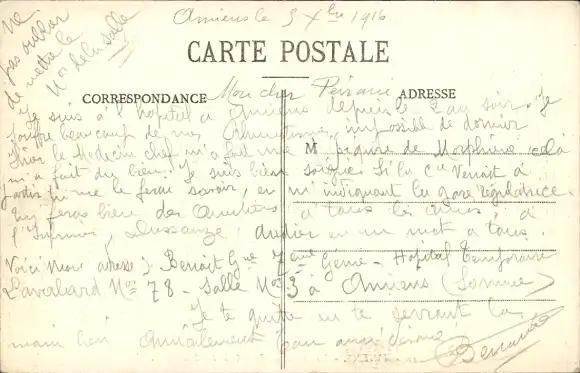 Ne
pas oublier
de mettre le
No de la salle
Amiens le 3 Xbre 1916
CARTE POSTALE
CORRESPONDANCE
ADRESSE
Mon cher
Je suis à l'hopital à Amiens depuis le 2 au soir. Je
souffre beaucoup de mes impossible de dormir
M
Hier le Medecin chef m'a fait une piqure de Morphine cela
m'a fait du bien. Je suis bien soigné. Si la Cie Venait à
partir tu me le feras savoir, en m'indiquant la gare régulatrice
Tu feras bien des Amitiés à tous les à
l'Infirmier, en un mot a tous.
Voici mon adresse: Benoit Gme 7eme Génie - Hopital Temporaire
Lavalard No 78 - Salle No 3 à Amiens (Somme)
Je te quitte en te serrant la
main bien Amicalement